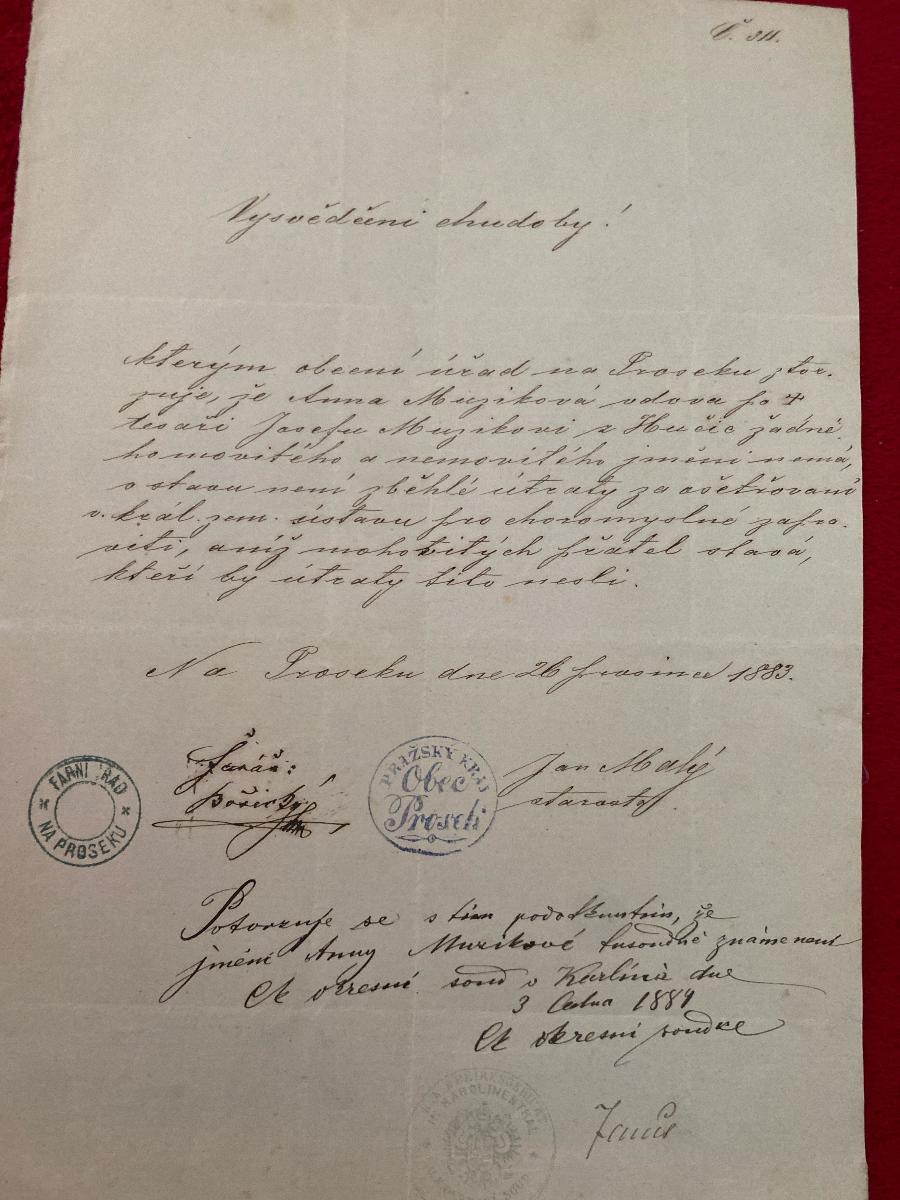 Č. 311.
Vysvědčení chudoby!
kterým obecní úřad na Proseku ztvr-
zuje, že Anna Muziková vdova po †
tesaři Josefu Muzikovi z Hučic žádné-
ho movitého a nemovitého jmění nemá,
v stavu není zběhlé útraty za ošetřovaní
v král. zem. ústavu pro choromyslné zapra-
viti, aniž mohovitých přátel stává,
kteří by útraty tito nesli.
Na Proseku dne 26 prosince 1883.
Farář:
FARNÍ ÚŘAD
NA PROSEKU
PRAŽSKÝ KRAJ
Obec
Prosek
Jan Malý
starosta
Potvrzuje se s tím podotknutím, že
jmění Anny Muzikové tusoudně známé není
Ck okresní soud v Karlíně dne
3 ledna 1884
Ck okresní soudce
K. K. BEZIRKSGERICHT
KAROLINENTHAL